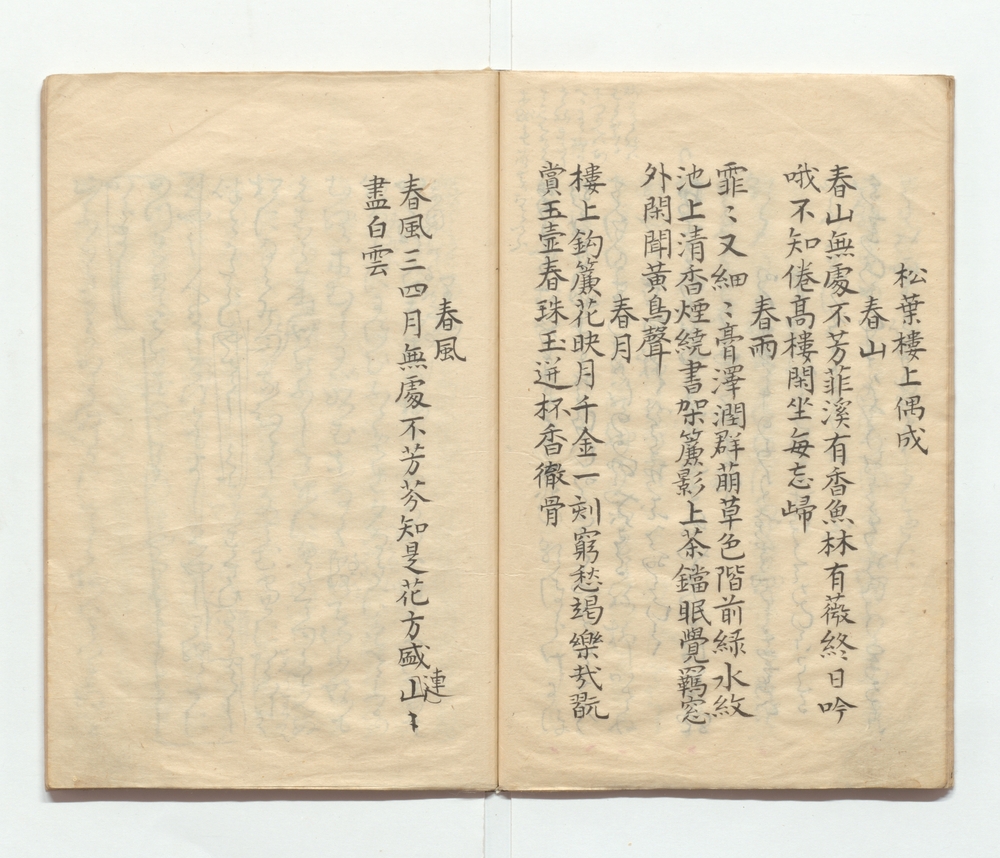 松葉樓上偶成
春山
春山無處不芳菲溪有香魚林有薇終日吟
哦不知倦髙樓閑坐每忘歸
春雨
霏〻又細〻膏澤潤群萠草色階前緑水紋
池上清香煙繞書架簾影上茶鐺眠覺羈窓
外閑聞黃鳥聲
春月
樓上鈎簾花映月千金一刻窮愁竭樂哉翫
賞玉壷春珠玉迸杯香徹骨
春風
春風三四月無處不芳芬知是花方盛山〻
連
盡白雲